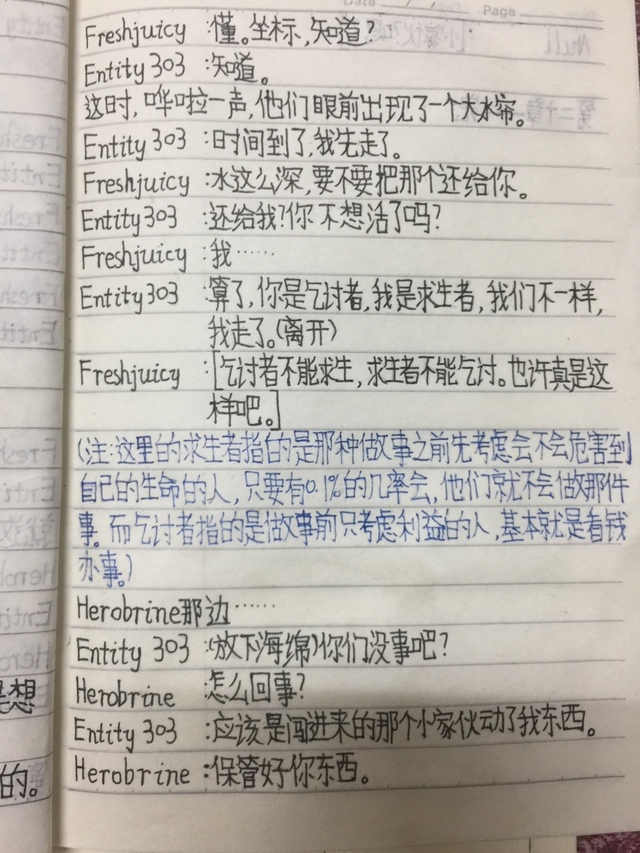 Date / / Page
Freshjuicy：懂。坐标，知道？
Entity 303：知道。
这时，哗啦一声，他们眼前出现了一个大水帘。
Entity 303：时间到了，我先走了。
Freshjuicy：水这么深，要不要把那个还给你。
Entity 303：还给我？你不想活了吗？
Freshjuicy：我……
Entity 303：算了，你是乞讨者，我是求生者，我们不一样，
我走了。（离开）
Freshjuicy：[乞讨者不能求生，求生者不能乞讨。也许真是这
样吧。]
（注：这里的求生者指的是那种做事之前先考虑会不会危害到
自己的生命的人，只要有0.1%的几率会，他们就不会做那件
事。而乞讨者指的是做事前只考虑利益的人，基本就是看钱
办事。）
Herobrine那边……
Entity 303：（放下海绵）你们没事吧？
Herobrine：怎么回事？
Entity 303：应该是闯进来的那个小家伙动了我东西。
Herobrine：保管好你东西。
是想
的。